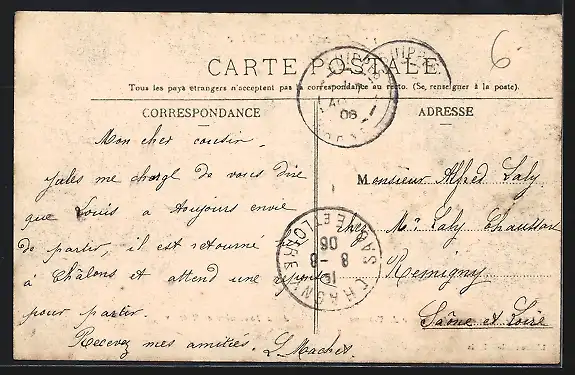 6
CARTE POSTALE
Tous les pays étrangers n'acceptent pas la correspondance au recto. (Se renseigner à la poste).
CORRESPONDANCE
Mon cher cousin.
Jules me charge de vous dire
que Louis a toujours envie
de partir, il est retourné
à Châlons et attend une réponse
pour partir.
Recevez mes amitiés. L. Machet.
ADRESSE
Monsieur Alfred Laly
chez Mr Laly Chaussan
Remigny
Saône et Loire
08
CHAGNY
SAONE ET LOIRE
15
8 - 8
08